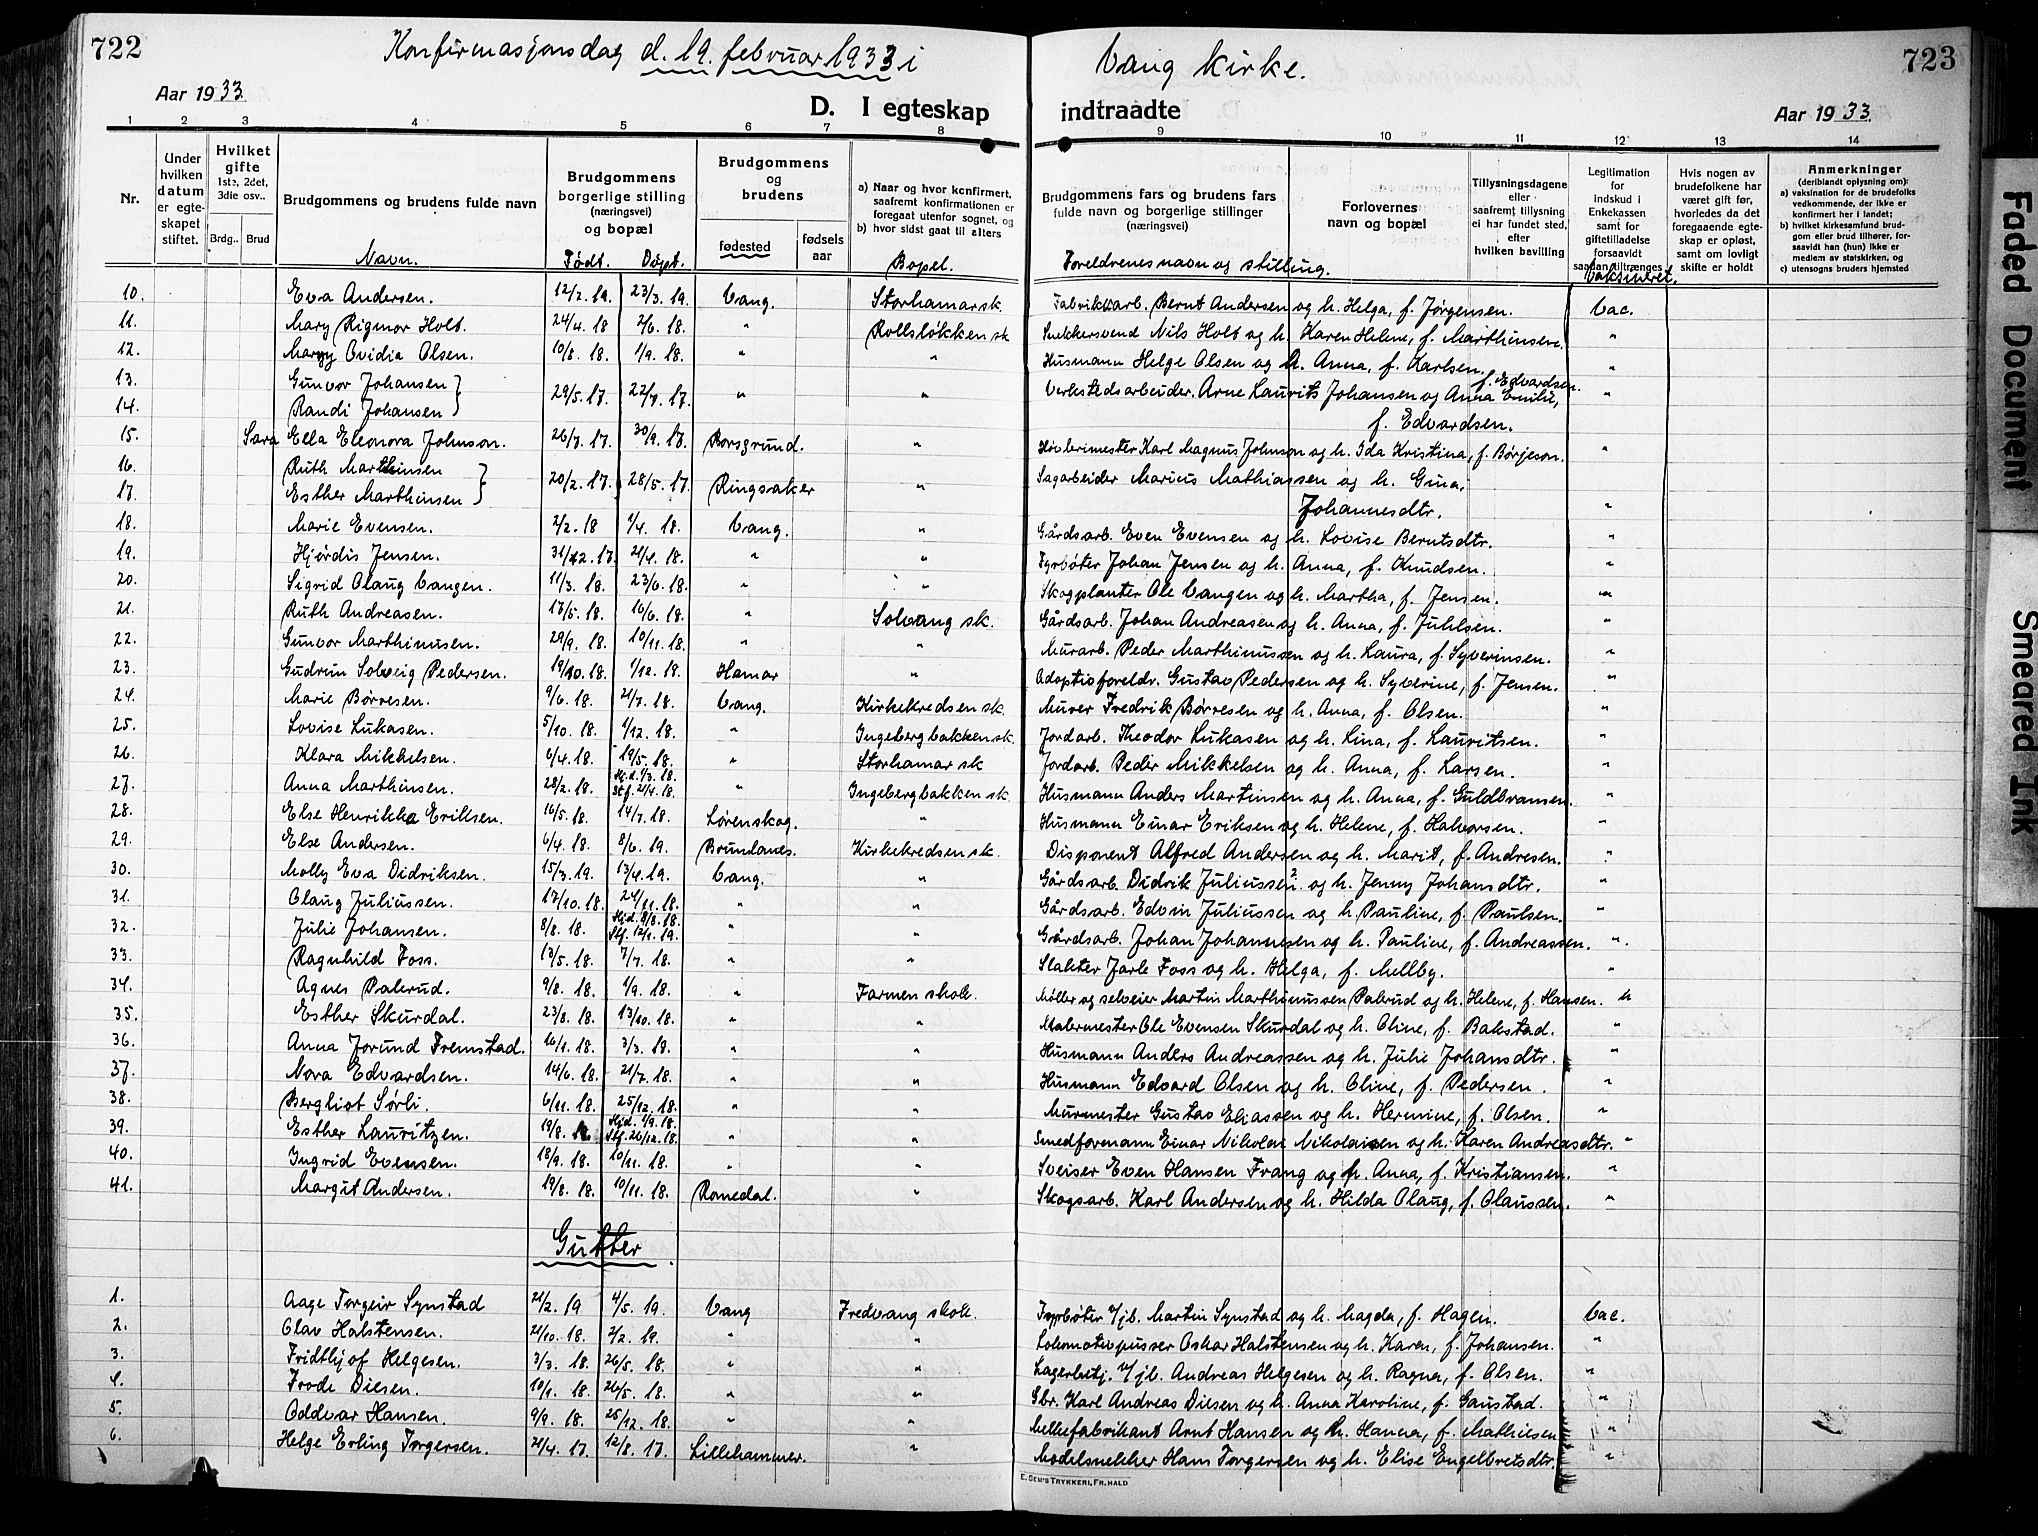 722
Konfirmasjonsdag d. 19. februar 1933 i
Vang kirke.
723
Aar 1933.
D. I egteskap
indtraadte
Aar 1933.
1 2 3 4 5 6 7 8 9 10 11 12 13 14
Nr.
Under hvilken datum er egteskapet stiftet.
Hvilket gifte 1ste, 2det, 3die osv..
Brdg.. Brud
Brudgommens og brudens fulde navn
Brudgommens borgerlige stilling (næringsvei) og bopæl
Brudgommens og brudens
fødested
fødsels aar
a) Naar og hvor konfirmert, saafremt konfirmationen er foregaat utenfor sognet, og
b) hvor sidst gaat til alters
Brudgommens fars og brudens fars fulde navn og borgerlige stillinger (næringsvei)
Forlovernes navn og bopæl
Tillysningsdagene eller saafremt tillysning ei har fundet sted, efter hvilken bevilling
Legitimation for indskud i Enkekassen samt for giftetilladelse forsaavidt saadan tiltrænges
Hvis nogen av brudefolkene har været gift før, hvorledes da det foregaaende egteskap er opløst, samt om lovligt skifte er holdt
Anmerkninger (deriblandt oplysning om):
a) vaksination for de brudefolks vedkommende, der ikke er konfirmert her i landet;
b) hvilket kirkesamfund brudgom eller brud tilhører, forsaavidt han (hun) ikke er medlem av statskirken, og
c) utensogns bruders hjemsted
Navn. Født. Døpt. Bopel. Foreldrenes navn og stilling. Vaksineret.
10. Eva Andersen. 12/2. 19. 23/3. 19. Vang. Storhamar sk. Fabrikkarb. Bernt Andersen og h. Helga, f. Jørgensen. Vac.
11. Mary Rigmor Holt. 24/4. 18 2/6. 18. " Rollsløkken sk Snekkersvend Nils Holt og h. Karen Helene, f. Marthinsen. "
12. Margy Ovidia Olsen. 10/8. 18. 1/9. 18. " " Husmann Helge Olsen og h. Anna, f. Karlsen. "
13. Gunvor Johansen }
14. Randi Johansen } 29/5. 17. 22/7. 17. " " Verkstedsarbeider. Arne Laurits Johansen og Anna Emilie, f. Edvardsen. "
f. Edvardsen.
15. Sara Ella Eleonora Johnson. 26/7. 17. 30/9. 17. Porsgrund. " Høvlerimester Karl Magnus Johnson og h. Ida Kristina, f. Børjeson. "
16. Ruth Marthinsen }
17. Esther Marthinsen } 20/2. 17. 28/5. 17. Ringsaker " Sagarbeider Marius Mathiassen og h. Gina,
Johannesdtr. "
18. Marie Evensen. 2/2. 18 1/4. 18. Vang. " Gårdsarb. Even Evensen og h. Lovise Berntsdtr. "
19. Hjørdis Jensen. 31/12. 17. 21/4. 18. " " Fyrbøter Johan Jensen og h. Anna, f. Knudsen. "
20. Sigrid Olaug Vangen. 11/3. 18. 23/6. 18. " " Skogplanter Ole Vangen og h. Martha, f. Jensen. "
21. Ruth Andreasen. 17/5. 18. 16/6. 18. " Solvang sk. Gårdsarb. Johan Andreasen og h. Anna, f. Juhlsen. "
22. Gunvor Marthinusen. 29/9. 18. 10/11. 18. " " Murarb. Peder Marthinussen og h. Laura, f. Syverinsen. "
23. Gudrun Solveig Pedersen. 19/10. 18. 1/12. 18. Hamar " Adoptivforeldr. Gustav Pedersen og h. Syverine, f. Jensen. "
24. Marie Børresen. 9/6. 18. 21/7. 18. Vang. Kirkekredsen sk. Murer Fredrik Børresen og h. Anna, f. Olsen. "
25. Lovise Lukasen. 5/10. 18. 1/12. 18. " Ingebergbakken sk. Jordarb. Theodor Lukasen og h. Lina, f. Lauritsen. "
26. Klara Mikkelsen. 6/4. 18. 19/5. 18. " Storhamar sk Jordarb. Peder Mikkelsen og h. Anna, f. Larsen. "
27. Anna Marthinsen. 28/2. 18. Hjd. 7/3. 18. Stf. 21/4. 18. " Ingebergbakken sk. Husmann Anders Martinsen og h. Anna, f. Guldbransen. "
28. Else Henrikka Eriksen. 16/5. 18. 14/7. 18. Lørenskog. " Husmann Einar Eriksen og h. Helene, f. Halvorsen. "
29. Else Andersen. 6/4. 18. 8/6. 19. Brundanes. Kirkekredsen sk. Disponent Alfred Andersen og h. Marit, f. Andresen. "
30. Molly Eva Didriksen. 15/3. 19. 13/4. 19. Vang. " Gårdsarb. Didrik Juliussen og h. Jenny Johansdtr. "
31. Olaug Juliussen. 17/10. 18. 24/11. 18. " " Gårdsarb. Edvin Juliussen og h. Pauline, f. Paulsen. "
32. Julie Johansen. 8/8. 18. Hjd. 9/8. 18. Stf. 12/1. 19. " " Gårdsarb. Johan Johannesen og h. Pauline, f. Andreassen. "
33. Ragnhild Foss. 13/5. 18. 7/7. 18. " " Slakter Jarle Foss og h. Helga, f. Mellby. "
34. Agnes Palerud. 9/8. 18. 1/9. 18. " Farmen skole. Møller og selveier Martin Marthinussen Palerud og h. Helene, f. Hansen. "
35. Esther Skurdal. 23/8. 18. 13/10. 18. " " Malermester Ole Evensen Skurdal og h. Oline, f. Bakstad. "
36. Anna Jorund Fremstad. 16/1. 18. 3/3. 18. " " Husmann Anders Andreassen og h. Julie Johansdtr. "
37. Nora Edvardsen. 14/6. 18. 21/7. 18. " " Husmann Edvard Olsen og h. Oline, f. Pedersen. "
38. Bergliot Sørli. 6/11. 18. 25/12. 18. " " Murmester Gustav Eliassen og h. Hermine, f. Olsen. "
39. Esther Lauritzen. 19/8. 18. Hjd. 1/9. 18. Stf. 26/12. 18. " " Smedformann Einar Nikolai Nikolaisen og h. Karen Andreasdtr. "
40. Ingrid Evensen. 18/9. 18. 10/11. 18. " " Sveiser Even Hansen Frang og h. Anna, f. Kristiansen. "
41. Margit Andersen. 19/8. 18. 10/11. 18. Romedal. " Skogsarb. Karl Andersen og h. Hilda Olaug, f. Olaussen. "
Gutter
1. Aage Torgeir Synstad 21/2. 19 4/5. 19. Vang Fredvang skole. Fyrbøter v/jb. Martin Synstad og h. Magda, f. Hagen. Vac.
2. Olav Halstensen. 21/10. 18. 2/2. 19. " " Lokomotivpusser Oskar Halstensen og h. Karen, f. Johansen. "
3. Fridthjof Helgesen. 3/3. 18. 26/5. 18. " " Lagerbetj. v/jb. Andreas Helgesen og h. Ragna, f. Olsen. "
4. Frode Diesen. 10/1. 18. 26/5. 18. " " Gbr. Karl Andreas Diesen og h. Anna Karoline, f. Gaustad. "
5. Oddvar Hansen. 9/9. 18. 25/12. 18. " " Melkefabrikant Arnt Hansen og h. Hanna, f. Mathiesen "
6. Helge Erling Torgersen. 21/4. 17. 12/8. 17. Lillehammer. " Modelsnekker Hans Torgersen og h. Elise Engelbretsdtr. "
E. SEM'S TRYKKERI, FR.HALD
Faded Document
Smeared Ink